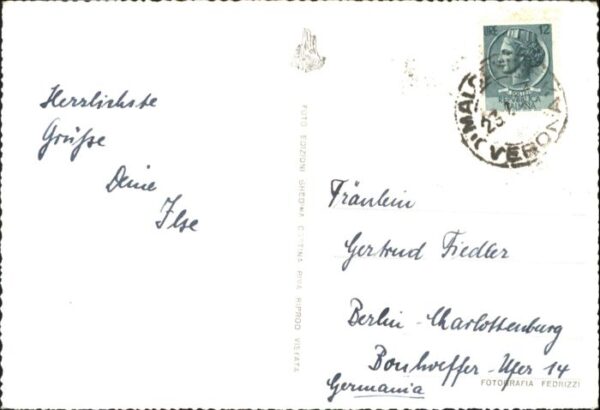 Herrlichste
Grüße
Deine
Ilse
FOTO EDIZIONI GHEDINA CORTINA RIPROD VIETATA
LIRE 12
REPVBBLICA
ITALIANA
VERONA
23
Fräulein
Gertrud Fiedler
Berlin-Charlottenburg
Bonhoeffer-Ufer 14
Germania
FOTOGRAFIA FEDRIZZI